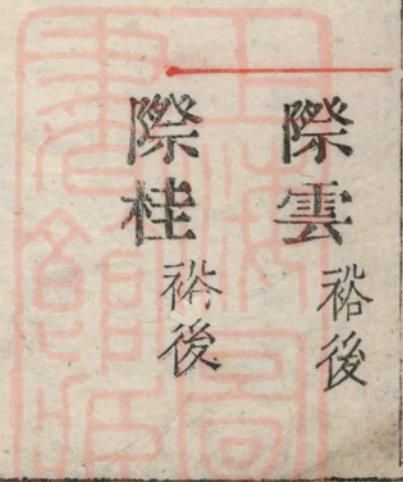 際雲裕後
際桂裕後